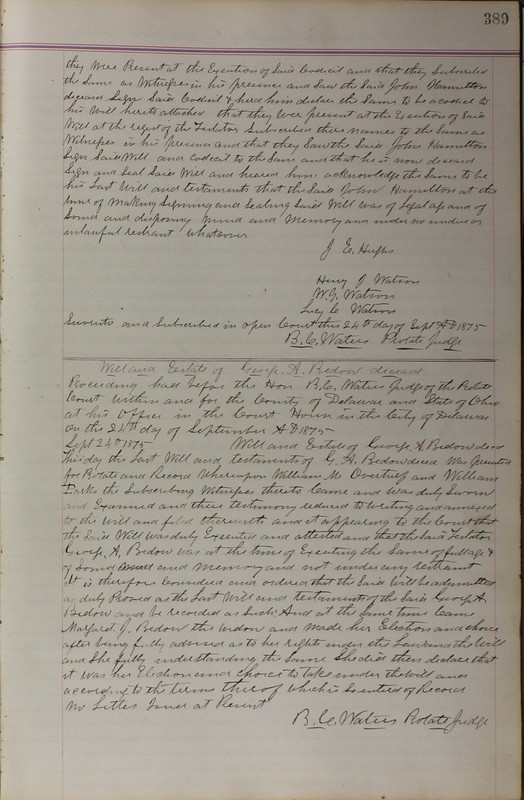 389
they were Present at the Execution of Said Codicil and that they Subscribed
the Same as Witnesses in his presence and Saw the Said John Hamilton
deceased Sign Said Codicil & heard him declare the Same to be a codicil to
his Will hereto attached that they were present at the Execution of Said
Will at the request of the Testator Subscribed there names to the Same as
Witnesses in his presence and that they Saw the Said John Hamilton
Sign Said Will and codicil to the Same and that he is now deceased
Sign and Seal Said Will and heared him acknowledge the Same to be
his Last Will and testament that the Said John Hamilton at the
time of Making Signing and Sealing Said Will was of Legal age and of
Sound and disposing Mind and Memory and under no undue or
unlawful restraint whatsoever
J. E. Hughs
Henry J Watson
W. G. Watson
Lucy C Watson
Sworn to and Subscribed in open Court this 24th day of Sept AD 1875
B. C. Waters Probate Judge
Will and Estate of George A. Bedow deceased
Proceeding had before the Hon. B. C. Waters Judge of the Probate
Court within and for the County of Delaware and State of Ohio
at his Office in the Court House in the City of Delaware
On the 24th day of September AD 1875
Sept 24th 1875 Will and Estate of George A. Bedow decd
This day the Last Will and testament of G. A. Bedow decd was presented
for Probate and Record Whereupon William M Overturf and William
Parks the Subscribing Witnesses thereto Came and was duly Sworn
and Examined and there testimony reduced to Writing and annexed
to the Will and filed therewith and it appearing to the Court that
the Said Will was duly Executed and attested and that the Said Testator
George A. Bedow was at the time of Executing the Same of full age &
of Sound and Memory and not under any restraint
It is therefore Considered and ordered that the Said Will be admitted
as duly Proved as the Last Will and testament of the Said George A.
Bedow and be recorded as Such. And at the Same time Came
Margaret J. Bedow the widow and made her Election and choice
after being fully advised as to her rights under the Law and the Will
and She fully understanding the Same She did then declare that
it was her Election and choice to take under the Will and
according to the terms thereof which is entered of Record
No Letters at Present
B. C. Waters Probate Judge